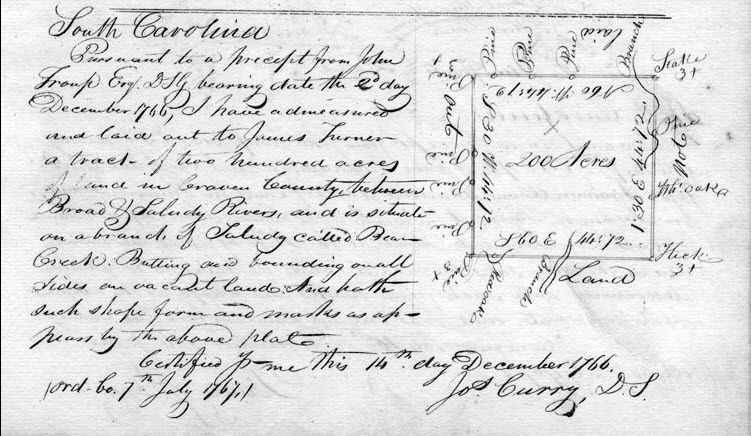 South Carolina
Pursuant to a precept from John
Troup Esq. D.S.G. bearing date the 2d day
December 1766, I have admeasured
and laid out to James Turner
a tract of two hundred acres
of land in Craven County, between
Broad & Saludy Rivers, and is situate
on a branch of Saludy called Bear
Creek. Butting and bounding on all
sides on vacant land. And hath
such shape form and marks as ap-
pears by the above plat.
Certified p me this 14th day December 1766.
Jos. Curry, D.S.
Ord. Co. 7th July 1767,
Pine
Pine
Pine
laid
Branch
Stake
3+
Pine
3+
out
N 60 W. 44:72
S 30 W. 44:72
200 Acres
N 30 E 44:72
Pine
Not
Pine
Pine
Pine
Pine
3+
S 60 E 44:72
branch
Land
Hick
3+